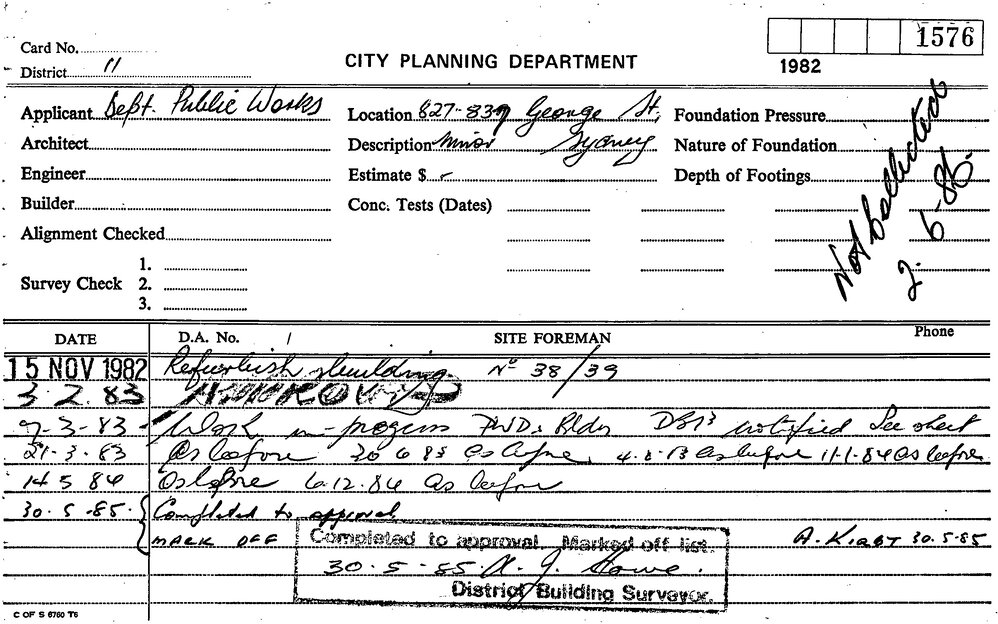 1576
Card No.
CITY PLANNING DEPARTMENT
1982
District 11
Applicant Dept. Public Works
Location 827-839 George St,
Foundation Pressure
Architect
Description Minor Sydney
Nature of Foundation
Engineer
Estimate $ -
Depth of Footings
Builder
Conc. Tests (Dates)
Alignment Checked
Not Collected
2. 6-86.
Survey Check 1.
2.
3.
DATE D.A. No. SITE FOREMAN Phone
15 NOV 1982 Refurbish building No 38/39
3 2. 83
9-3-83 Work in progress PWD. Bldr notified See sheet
21-3.83 As before 30 6 83 As before 4.8.83 As before 11-1.84 As before
14 5 84 As before 6.12.84 As before
30.5-85. Completed to approval
MARK OFF A. KIRBY 30.5-85
Completed to approval. Marked off list.
30.5-85 Howe.
District Building Surveyor.
C OF S 6760 T6